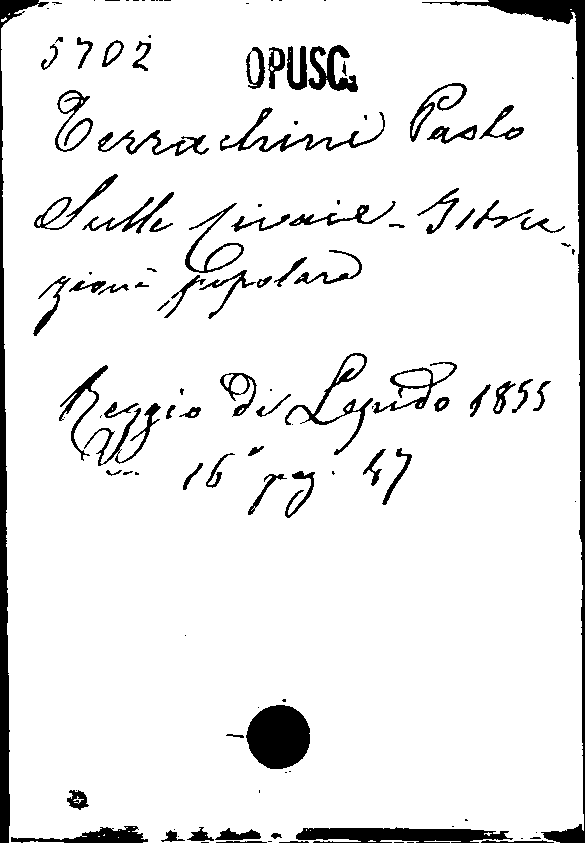 5702 OPUSC.
Terrachini Paolo
Sulle civaie - Istru-
zione popolare
Reggio di Lepido 1855
16° pag. 47